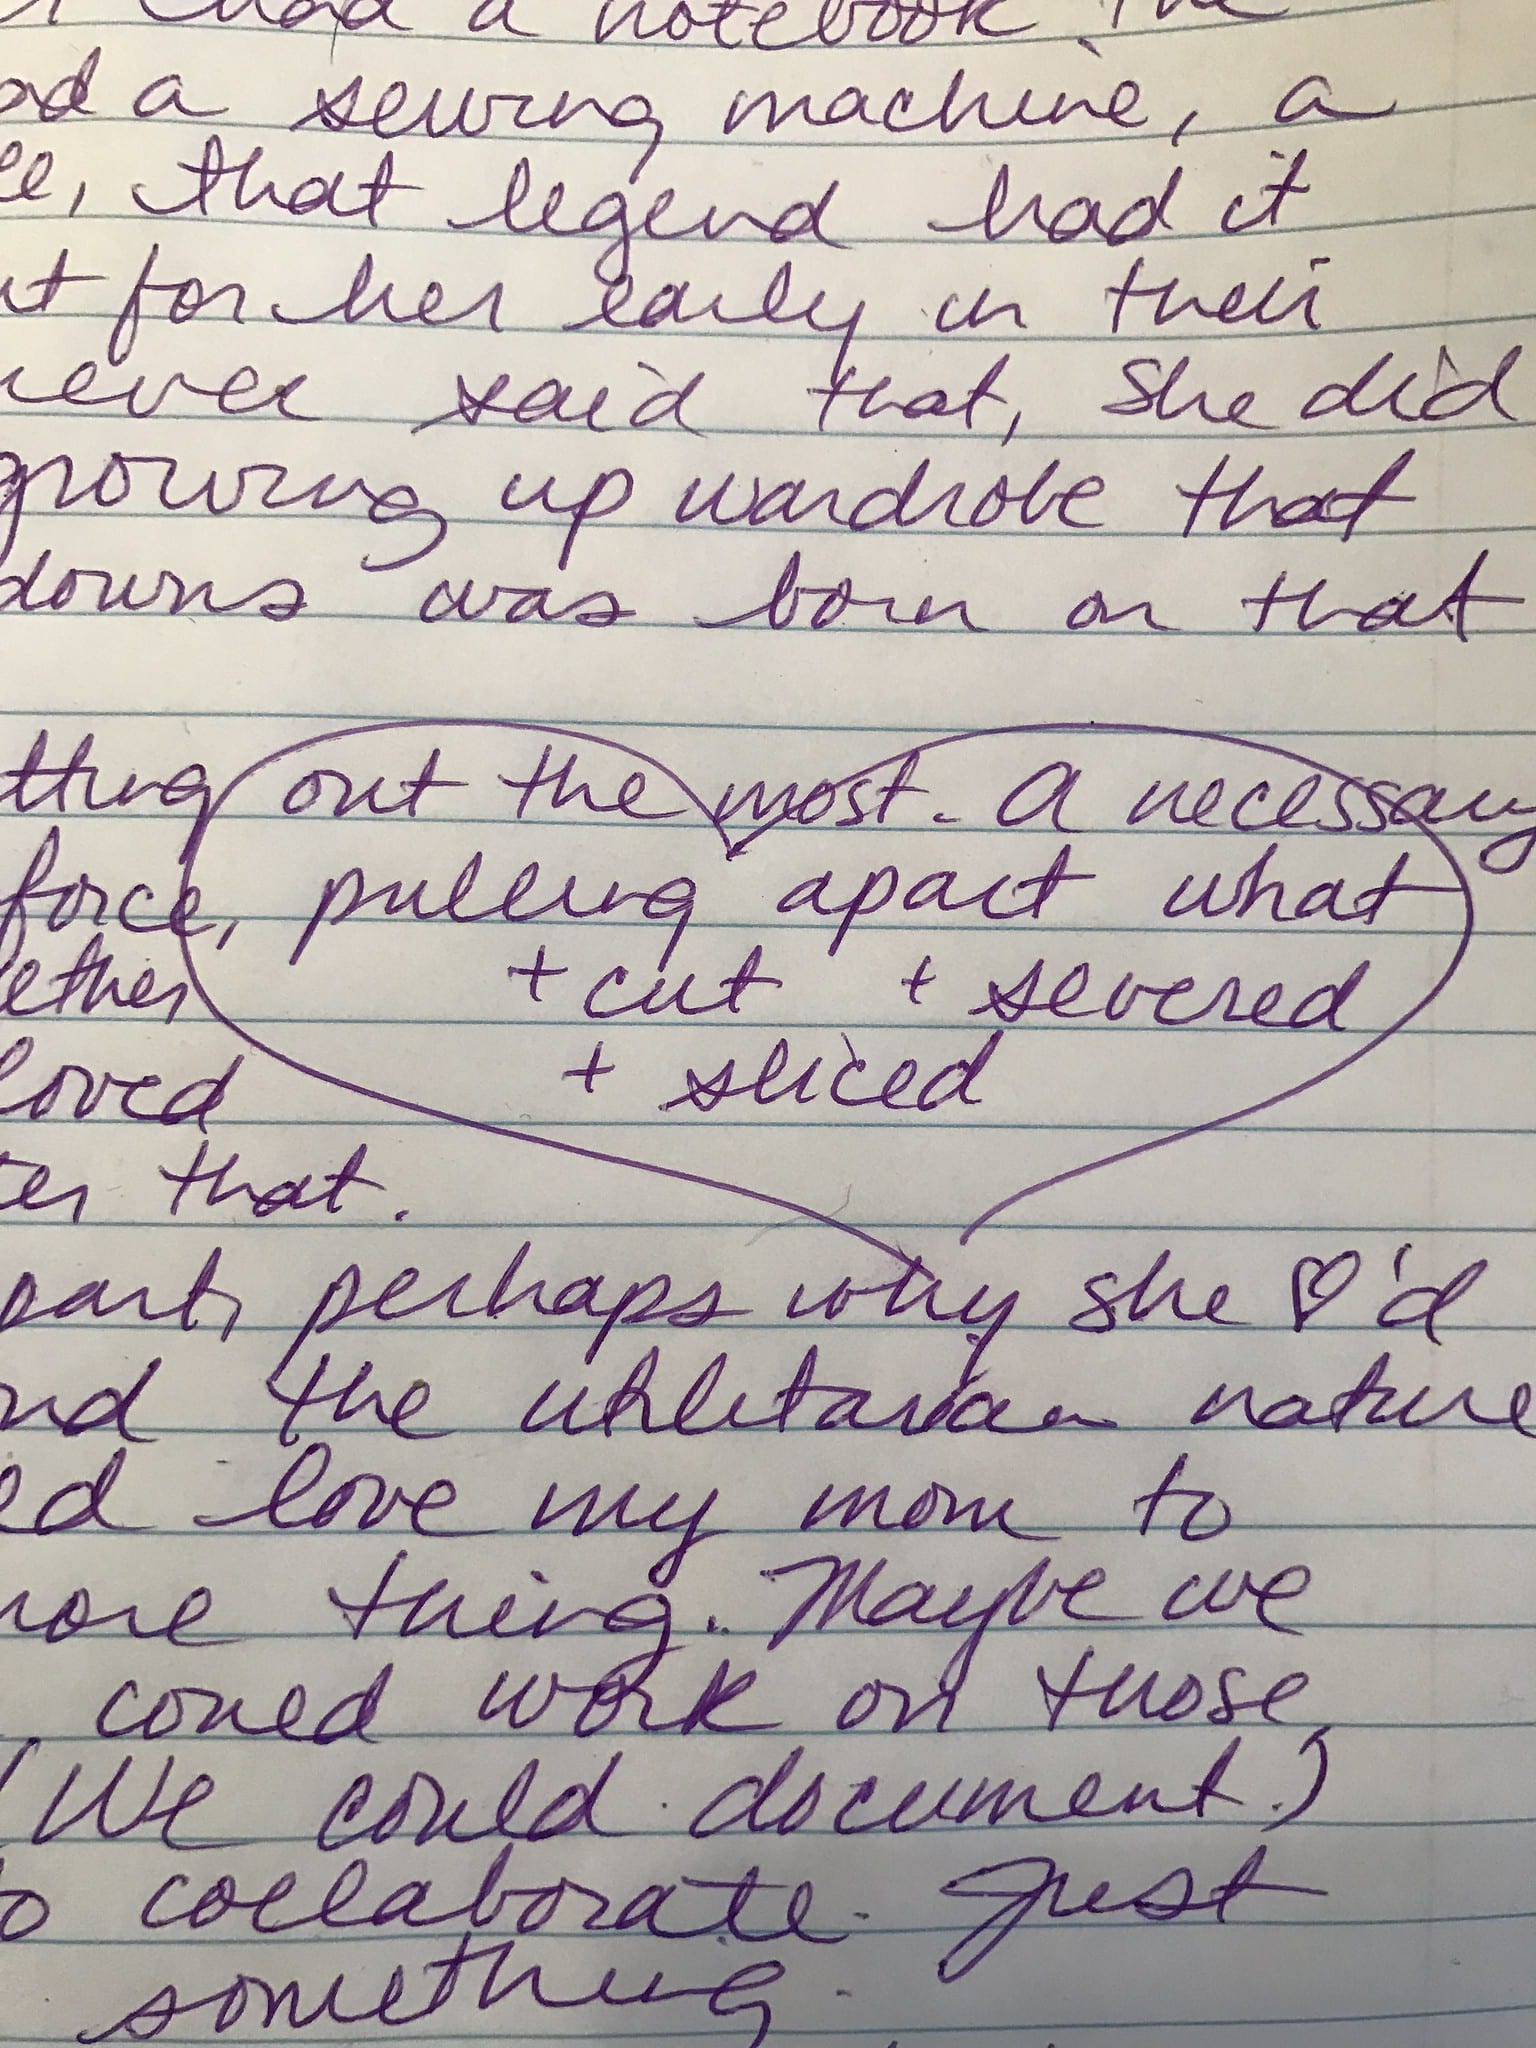 had a notebook. The
a sewing machine, a
that legend had it
for her early in their
never said that, She did
growing up wardrobe that
downs was born on that
out the most. A necessary
force, pulling apart what
+ cut + severed
loved + sliced
that.
perhaps why she ♡'d
the utilitarian nature
love my mom to
thing. Maybe we
could work on those
(We could document.)
collaborate. Just
something.